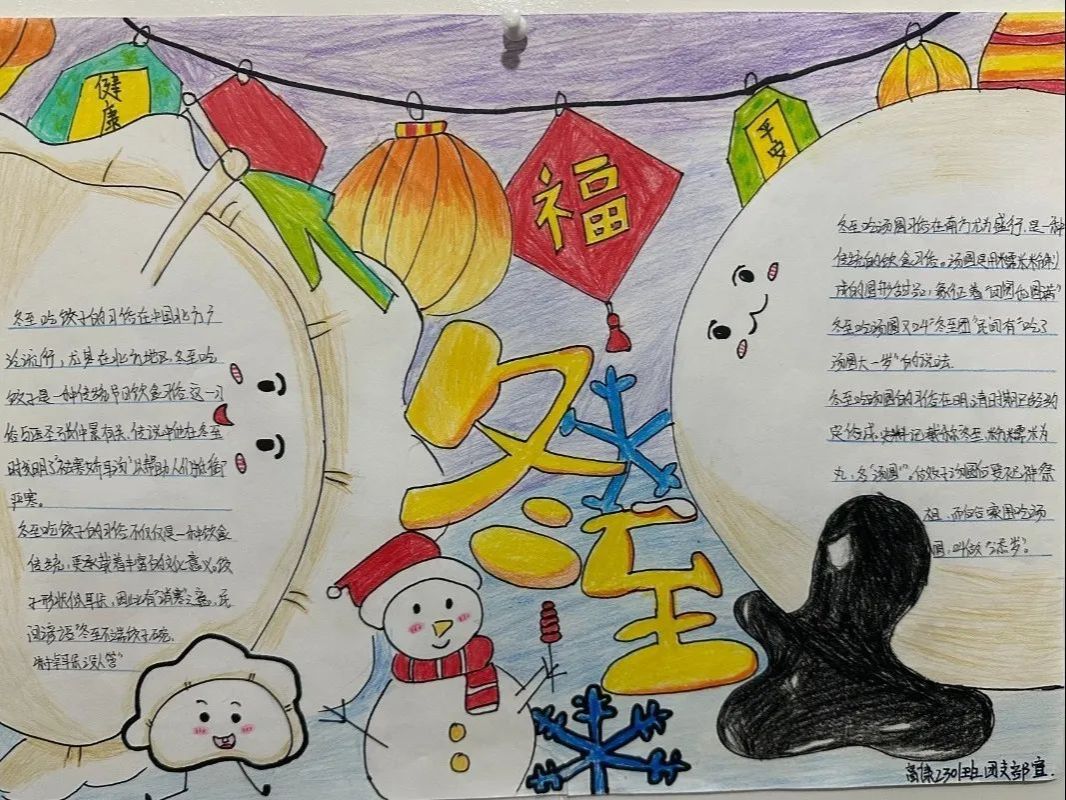 健康
福
平安
冬至
冬至吃饺子的习俗在中国北方广
泛流行，尤其在北方地区，冬至吃
饺子是一种传统节日饮食习俗，这一习
俗与医圣张仲景有关，传说中他在冬至
时发明了"祛寒娇耳汤"以帮助人们抵御
严寒。
冬至吃饺子的习俗不仅仅是一种饮食
传统，更承载着丰富的文化意义。饺
子形状似耳朵，因此也有"消寒"之意，民
间谚语"冬至不端饺子碗，
冻掉耳朵没人管"
冬至吃汤圆习俗在南方尤为盛行，是一种
传统的饮食习俗。汤圆是用糯米粉制
成的圆形甜品，象征着"团团圆圆"
冬至吃汤圆又叫"冬至团"民间有"吃了
汤圆大一岁"的说法.
冬至吃汤圆的习俗在明清时期已经约
定俗成，史料记载称冬至，粉糯米为
丸，名"汤圆"。
祖，而后合家团吃汤
圆，叫做"添岁"。
班团支部宣.